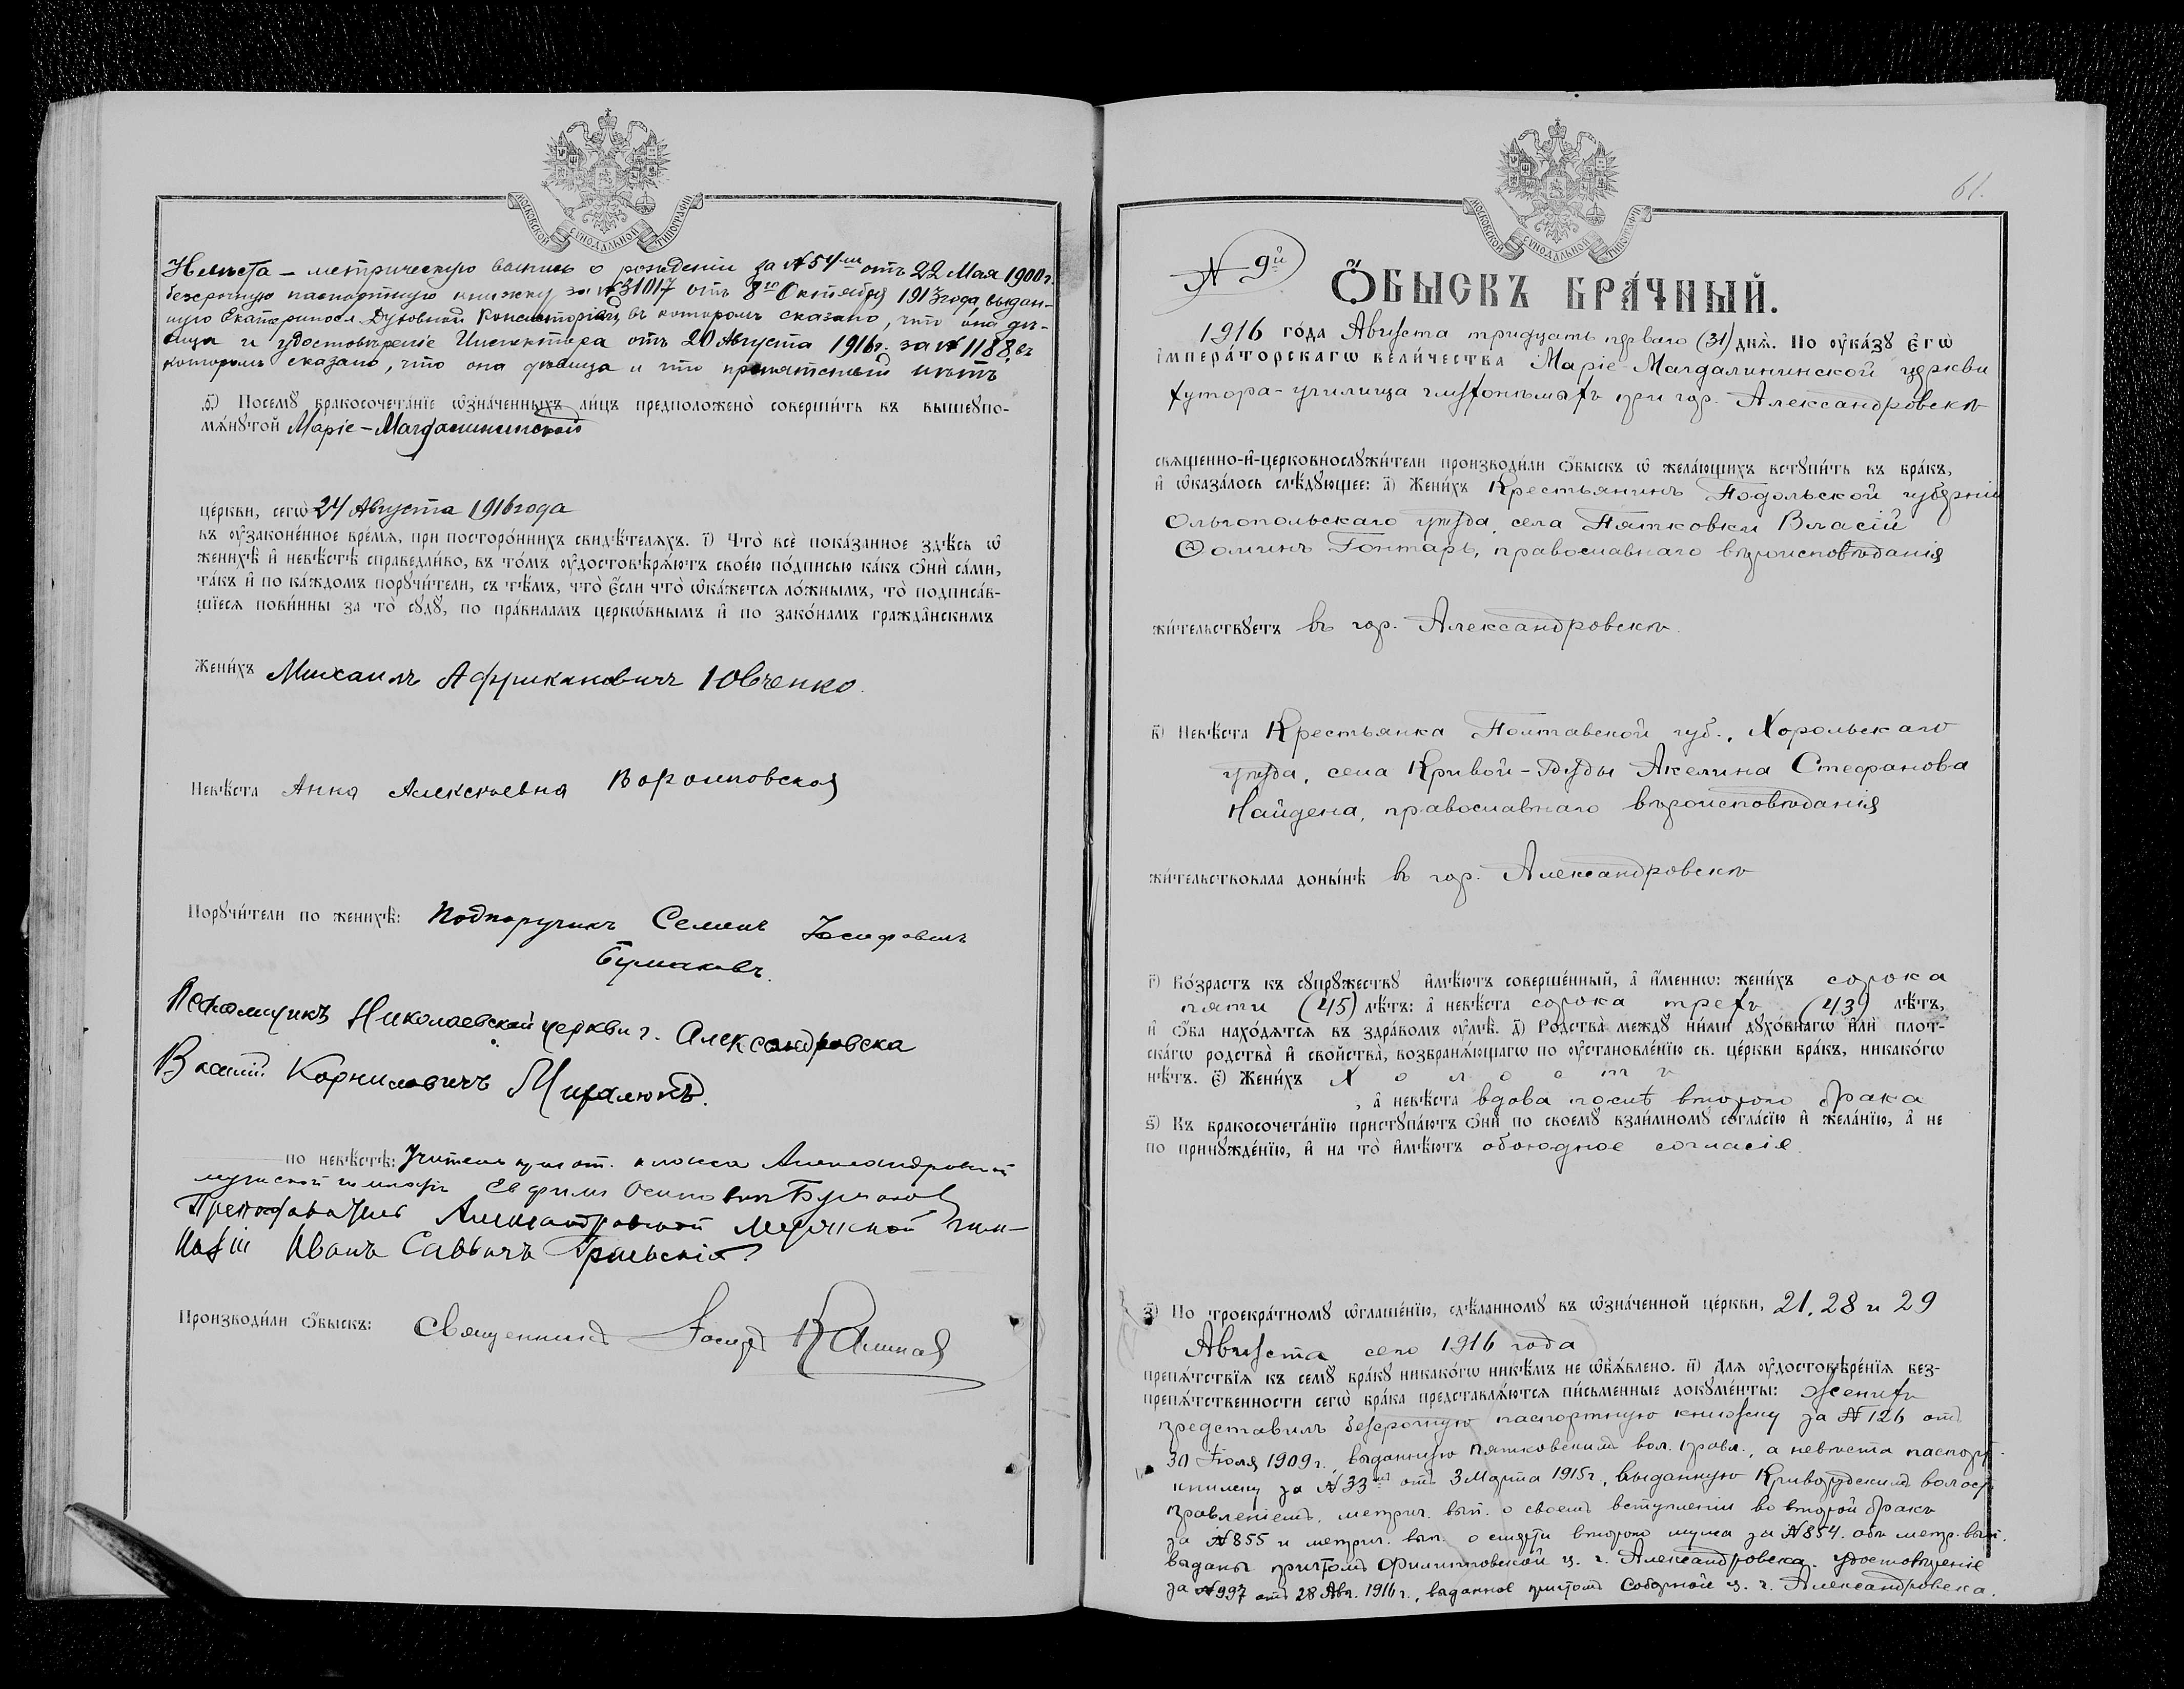 МОСКОВСКОЙ СѴНОДАЛЬНОЙ ТИПОГРАФІИ
Невѣста – метрическую выпись о рожденіи за № 54-мъ отъ 22 Мая 1900 г.
безсрочную паспортную книжку за № 31017 отъ 8го Октября 1913 года, выдан-
ную Екатериносл. Духовной Консисторіей, въ которомъ сказано, что она дѣ-
вица и удостовѣреніе Инспектора отъ 20 Августа 1916 г. за № 1188 въ
которомъ сказано, что она дѣвица и что препятствій нѣтъ
Посемꙋ бракосочета́нїе ѡ҆зна́ченныхъ ли́цъ предположено̀ соверши́ть въ вышеꙋпо-
мѧ́нꙋтой Маріе-Магдалининской
це́ркви, сегѡ̀ 24 Августа 1916 года
въ ᲂу҆зако́ненное вре́мѧ, при посторо́ннихъ свидѣ́телѧхъ. і҃) Что̀ всѐ пока́занное здѣ́сь ѡ҆
женихѣ̀ и҆ невѣ́стѣ справедли́во, въ то́мъ ᲂу҆достовѣрѧ́ютъ свое́ю по́дписью ка́къ ѻ҆нѝ са́ми,
та́къ и҆ по ка́ждомъ порꙋчи́тели, съ тѣ́мъ, что̀ є҆́сли что̀ ѡ҆ка́жетсѧ ло́жнымъ, то̀ подписа́в-
шїесѧ пови́нны за то̀ сꙋдꙋ̀, по пра́виламъ церко́внымъ и҆ по зако́намъ гражда́нскимъ
Жени́хъ Михаилъ Африкановичъ Ювченко.
Невѣ́ста Анна Алексѣевна Воропновская
Порꙋчи́тели по женихѣ̀: Подпоручикъ Семенъ Іосифовичъ
Бушаковъ.
Псаломщикъ Николаевской церкви г. Александровска
Василій Корниловичъ
по невѣ́стѣ: Учитель класса Александровской
мужской гимназіи Ефимъ Осиповичъ Бушаковъ
Преподаватель Александровской мужской гим-
назіи Иванъ Саввичъ
Производи́ли ѻ҆́быскъ: Священникъ Іосифъ
61.
МОСКОВСКОЙ СѴНОДАЛЬНОЙ ТИПОГРАФІИ
№ 9й
ѺБЫСКЪ БРА́ЧНЫЙ.
1916 го́да Августа тридцать перваго (31) днѧ̀. По ᲂу҆ка́зꙋ Є҆гѡ̀
І҆мпера́торскагѡ вели́чества Маріе-Магдалининской церкви
хутора-училища глухонѣмыхъ при гор. Александровскѣ
свѧще́нно-и҆-церковнослꙋжи́тели производи́ли ѻ҆́быскъ ѡ҆ жела́ющихъ встꙋпи́ть въ бра́къ,
и҆ ѡ҆каза́лось слѣ́дꙋющее: а҃) Жени́хъ Крестьянинъ Подольской губерніи
Ольгопольскаго уѣзда, села Пятковки Власій
Ѳоминъ Гонтарь, православнаго вѣроисповѣданія
жи́тельствꙋетъ въ гор. Александровскѣ.
в҃) Невѣ́ста Крестьянка Полтавской губ., Хорольскаго
уѣзда, села Кривой-Руды Акелина Стефанова
Найдена, православнаго вѣроисповѣданія
жи́тельствовала доны́нѣ въ гор. Александровскѣ
г҃) Во́зрастъ къ сꙋпрꙋ́жествꙋ и҆мѣ́ютъ соверше́нный, а҆ и҆́меннѡ: жени́хъ сорока
пяти (45) лѣ́тъ: а҆ невѣ́ста сорока трехъ (43) лѣ́тъ,
и҆ ѻ҆́ба нахо́дѧтсѧ въ здра́вомъ ᲂу҆мѣ̀. д҃) Родства̀ междꙋ ни́ми дꙋхо́внагѡ и҆лѝ плот-
ска́гѡ родства̀ и҆ свойства̀, возбранѧ́ющагѡ по ᲂу҆становле́нїю св. це́ркви бра́къ, никако́гѡ
нѣ́тъ. є҃) Жени́хъ Холостъ
, а҆ невѣ́ста вдова послѣ второго брака
ѕ҃) Къ бракосочета́нїю пристꙋпа́ютъ ѻ҆нѝ по своемꙋ̀ взаи́мномꙋ согла́сїю и҆ жела́нїю, а҆ не
по принꙋжде́нїю, и҆ на то̀ и҆мѣ́ютъ обоюдное согласіе.
з҃) По троекра́тномꙋ ѡ҆глаше́нїю, сдѣ́ланномꙋ въ ѡ҆зна́ченной це́ркви, 21, 28 и 29
Августа сего 1916 года
препѧ́тствїѧ къ семꙋ̀ бра́кꙋ никако́гѡ никѣ́мъ не ѡ҆б̾ѧ́влено. и҃) Длѧ̀ ᲂу҆достовѣре́нїѧ без-
препѧ́тственности сегѡ̀ бра́ка представлѧ́ютсѧ пи́сьменные докꙋме́нты: Женихъ
представилъ безсрочную паспортную книжку за № 126 отъ
30 Іюля 1909 г., выданную Пятковскимъ вол. правл., а невѣста паспорт.
книжку за № 33 отъ 3 Марта 1915 г., выданную Криворудскимъ волост.
правленіемъ, метрич. вып. о своемъ вступленіи во второй бракъ
за № 855 и метрич. вып. о смерти второго мужа за № 854. обѣ метр. вып.
выданы причтомъ Филипповской ц. г. Александровска. удостовѣреніе
за № 997 отъ 28 Авг. 1916 г., выданное причтомъ Соборной ц. г. Александровска.